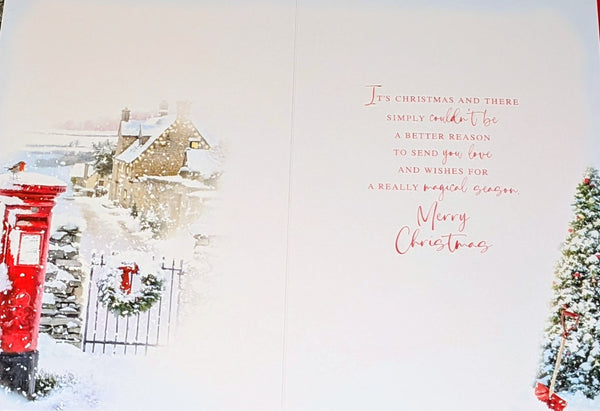 IT'S CHRISTMAS AND THERE
SIMPLY couldn't be
A BETTER REASON
TO SEND you love
AND WISHES FOR
A REALLY magical season.
Merry
Christmas